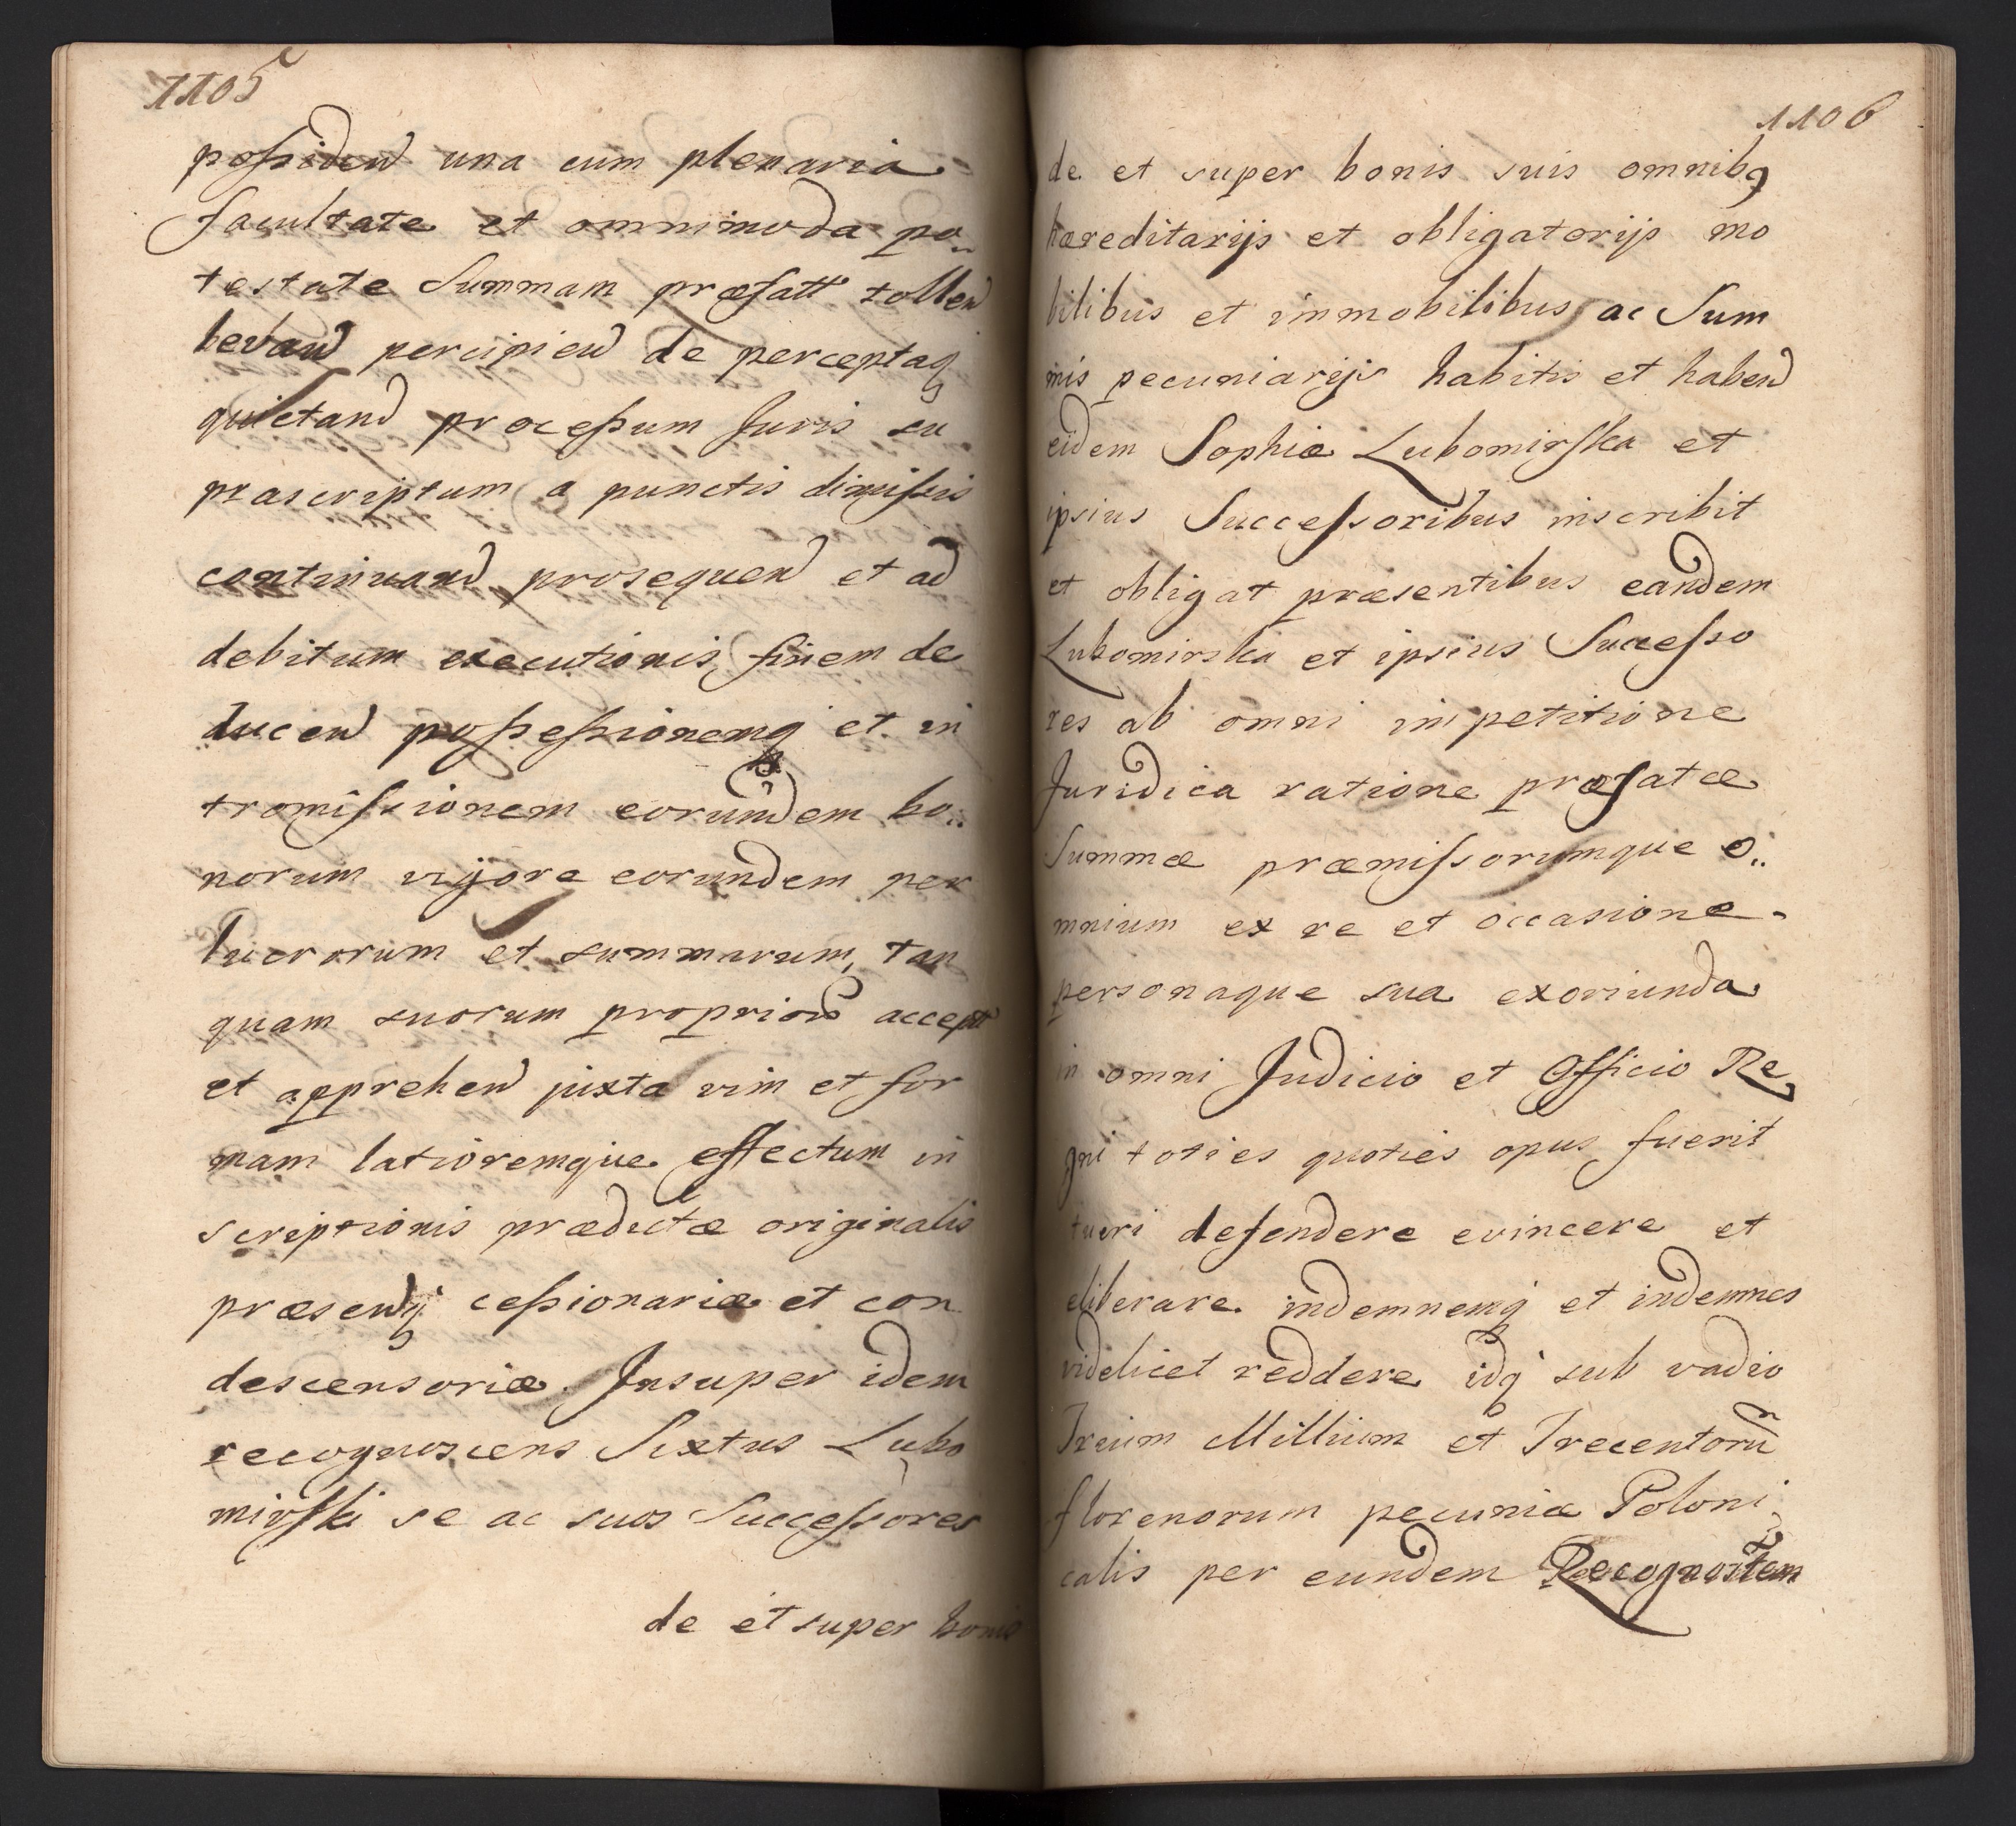 1105
possidend una cum plenaria
facultate et omnimoda po„
testate Summam præfatt tollend
levand percipiend de perceptaq
quietand processum Juris su
prascriptum a punctis dimissis
continuand prosequend et ad
debitum executionis finem de
ducend possessionemq et in
tromissionem eorundem bo„
norum vigore eorundem per
lucrorum et summarum, tan
quam suorum propriorũ accept
et apprehend juxta vim et for
mam latioremque effectum in
scriptionis prædictæ originalis
præsentq cessionariæ et con
descensoriæ. Insuper idem
recognoscens Sixtus Lubo
mirski se ac suos Successores
de et super bonis
1106
de et super bonis suis omnibq
hæreditarijs et obligatorijs mo
bilibus et immobilibus ac Sum
mis pecuniarijs habitis et habend
eidem Sophiæ Lubomirska et
ipsius Successoribus inscribit
et obligat præsentibus eandem
Lubomirska et ipsius Successo
res ab omni impetitione
Juridica ratione præfatæ
Summæ præmissorumque o„
mnium ex re et occasione
personaque sua exoriunda
in omni Judicio et Officio Re
gni toties quoties opus fuerit
tueri defendere evincere et
eliberare indemnemq et indemnes
videlicet reddere idq sub vadio
Trium Millium et Trecentorũ
florenorum pecuniæ Poloni
calis per eundem Recognoscẽtem